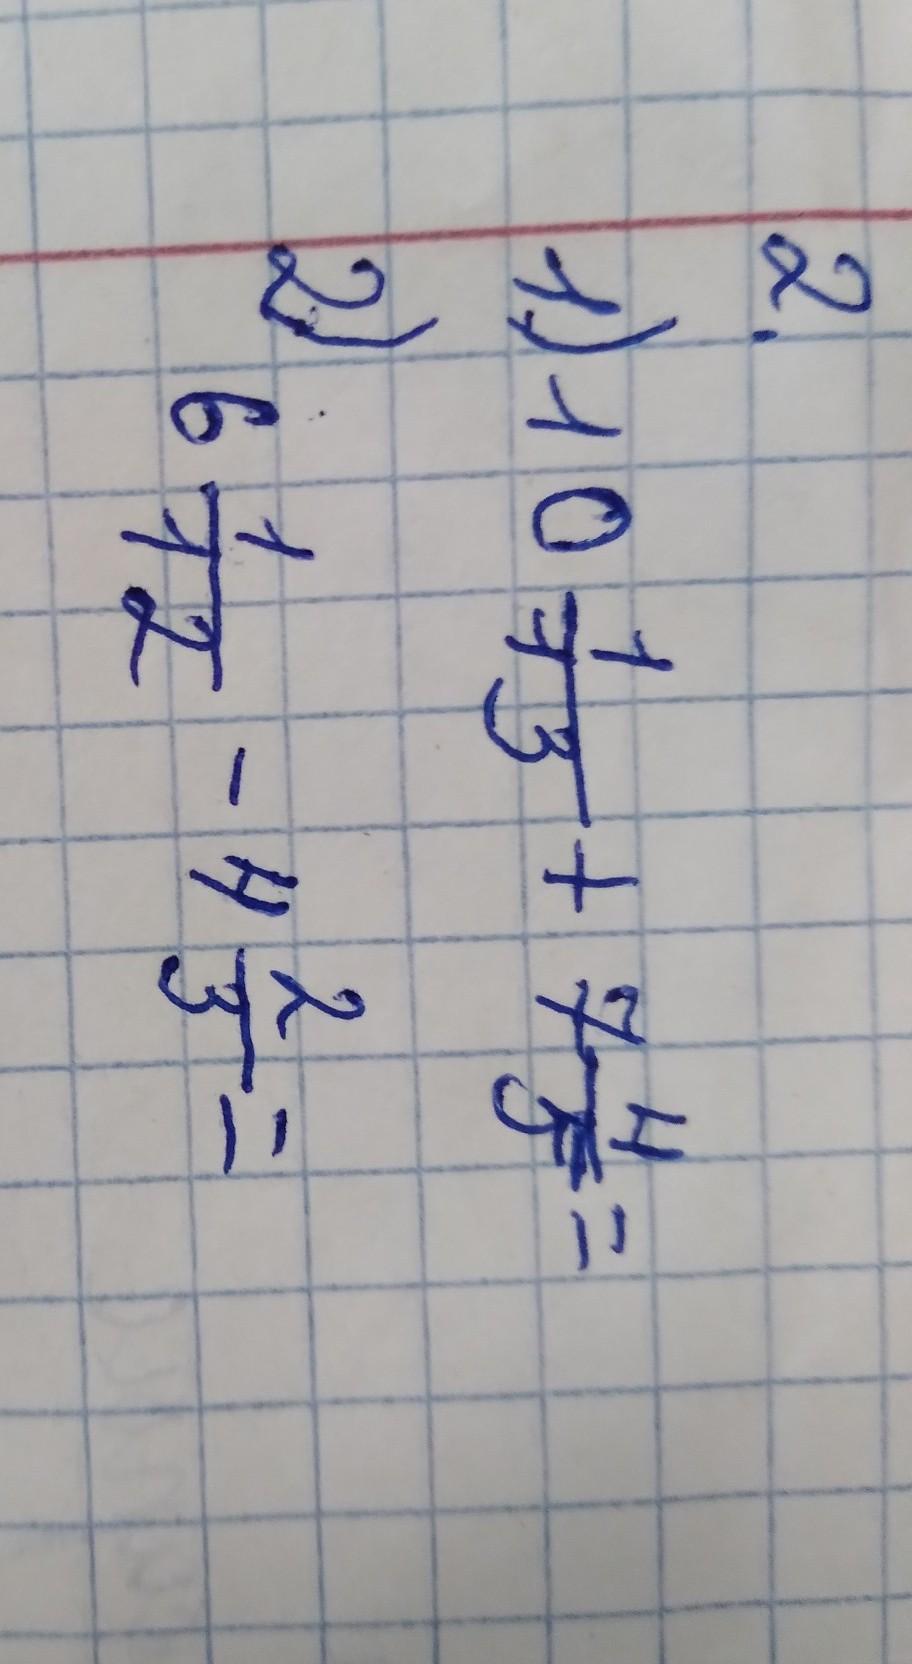 2.
1) 10 1/13 + 7 4/5 =
2) 6 1/12 - 4 2/3 =